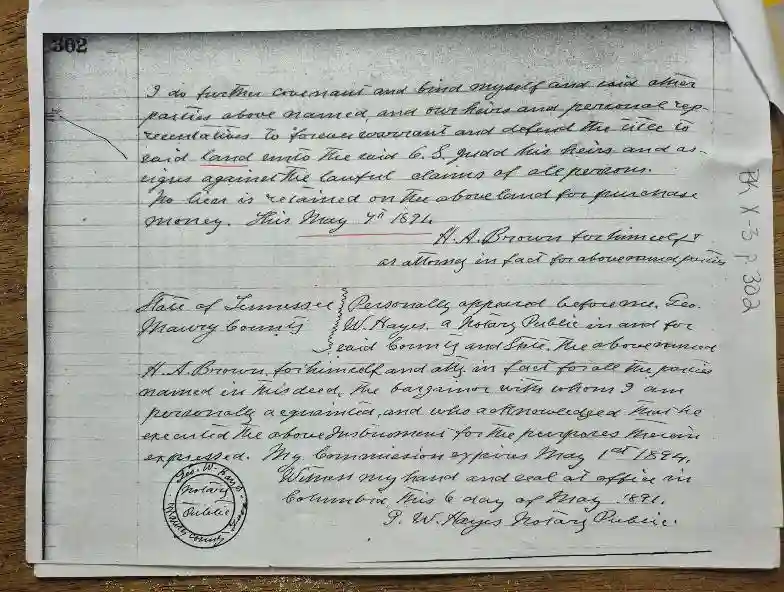 302
I do further covenant and bind myself and said other
parties above named, and our heirs and personal rep-
resentatives to forever warrant and defend the title to
said land unto the said C. S. Judd his heirs and as-
signs against the lawful claims of all persons.
No lien is retained on the above land for purchase
money. This May 4th 1892
H. A. Brown for himself &
as attorney in fact for above named parties
State of Tennessee } Personally appeared before me, Geo.
Maury County } W. Hayes, a Notary Public in and for
said County and State, the above named
H. A. Brown, for himself and atty in fact for all the parties
named in this deed, the bargainor with whom I am
personally acquainted, and who acknowledged that he
executed the above Instrument for the purposes therein
expressed. My Commission expires May 1st 1894.
Witness my hand and seal at office in
Columbia, this 6 day of May 1891.
G. W. Hayes Notary Public.
Geo. W. Hayes
Notary
Public
Maury County
Bk X-3 p 302